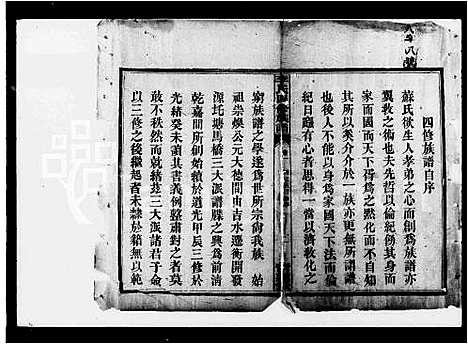 四修族譜自序
蘇氏欲生人孝弟之心而創為族譜亦
翼教之功也夫先哲以倫紀傍其身而
家而國而天下得為之黙化而不自知
其所以爰介介於一族亦更無所謂譜
也後人不能以身為家國天下法而倫
紀日廢有心者思得一當以濟敎化之
窮族譜之學遂為世所宗尚我族 始
祖崇㷫公元大德間由吉水遷衡開發
源托塘馬橋三大派譜牒之興為前淸
乾嘉間所創始續於道光甲辰三修於
光緒癸未讀其書義例整肅對之者莫
敢不秩然而就緒茲三大派諸君子僉
以三修之後繼起者未隸於籍無以範